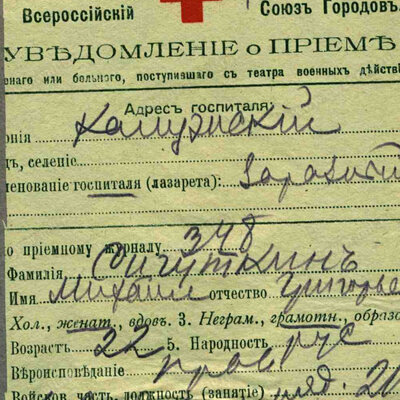 Всероссійскій Союзъ Городовъ
УВѢДОМЛЕНІЕ о ПРІЕМѢ
енаго или больного, поступившаго съ театра военныхъ дѣйстві
Адресъ госпиталя:
рнія Калужскій
дъ, селеніе
менованіе госпиталя (лазарета): Заразный
о пріемному журналу 348
Фамилія Сигуткинъ
Имя Михаилъ отчество Григорье
Хол., женат., вдов. 3. Неграм., грамотн., образо
Возрастъ 22 5. Народность рус
Вѣроисповѣданіе прав
Войсков. часть, должность (занятіе) ряд. 20